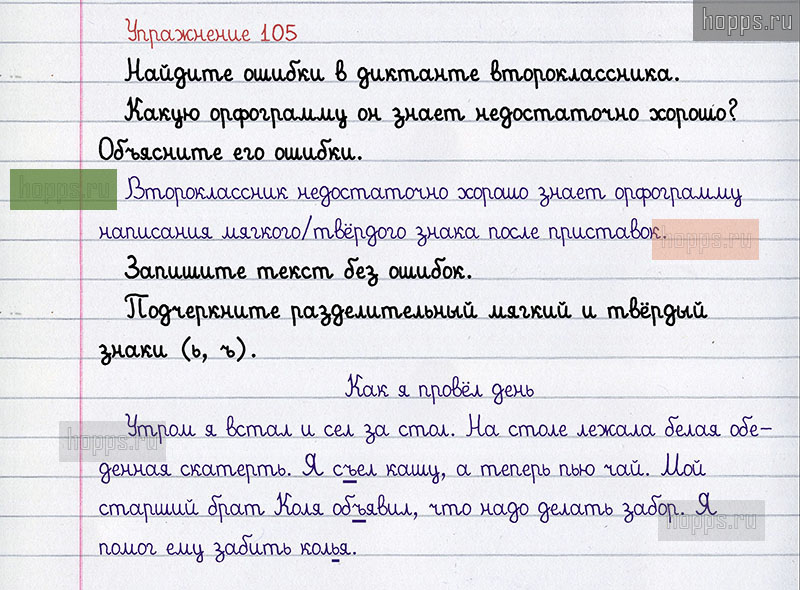 hopps.ru
Упражнение 105
Найдите ошибки в диктанте второклассника.
Какую орфограмму он знает недостаточно хорошо?
Объясните его ошибки.
hopps.ru
Второклассник недостаточно хорошо знает орфограмму
написания мягкого/твёрдого знака после приставок.
hopps.ru
Запишите текст без ошибок.
Подчеркните разделительный мягкий и твёрдый
знаки (ь, ъ).
Как я провёл день
hopps.ru
Утром я встал и сел за стол. На столе лежала белая обе-
денная скатерть. Я съел кашу, а теперь пью чай. Мой
старший брат Коля объявил, что надо делать забор. Я
hopps.ru
помог ему забить колья.